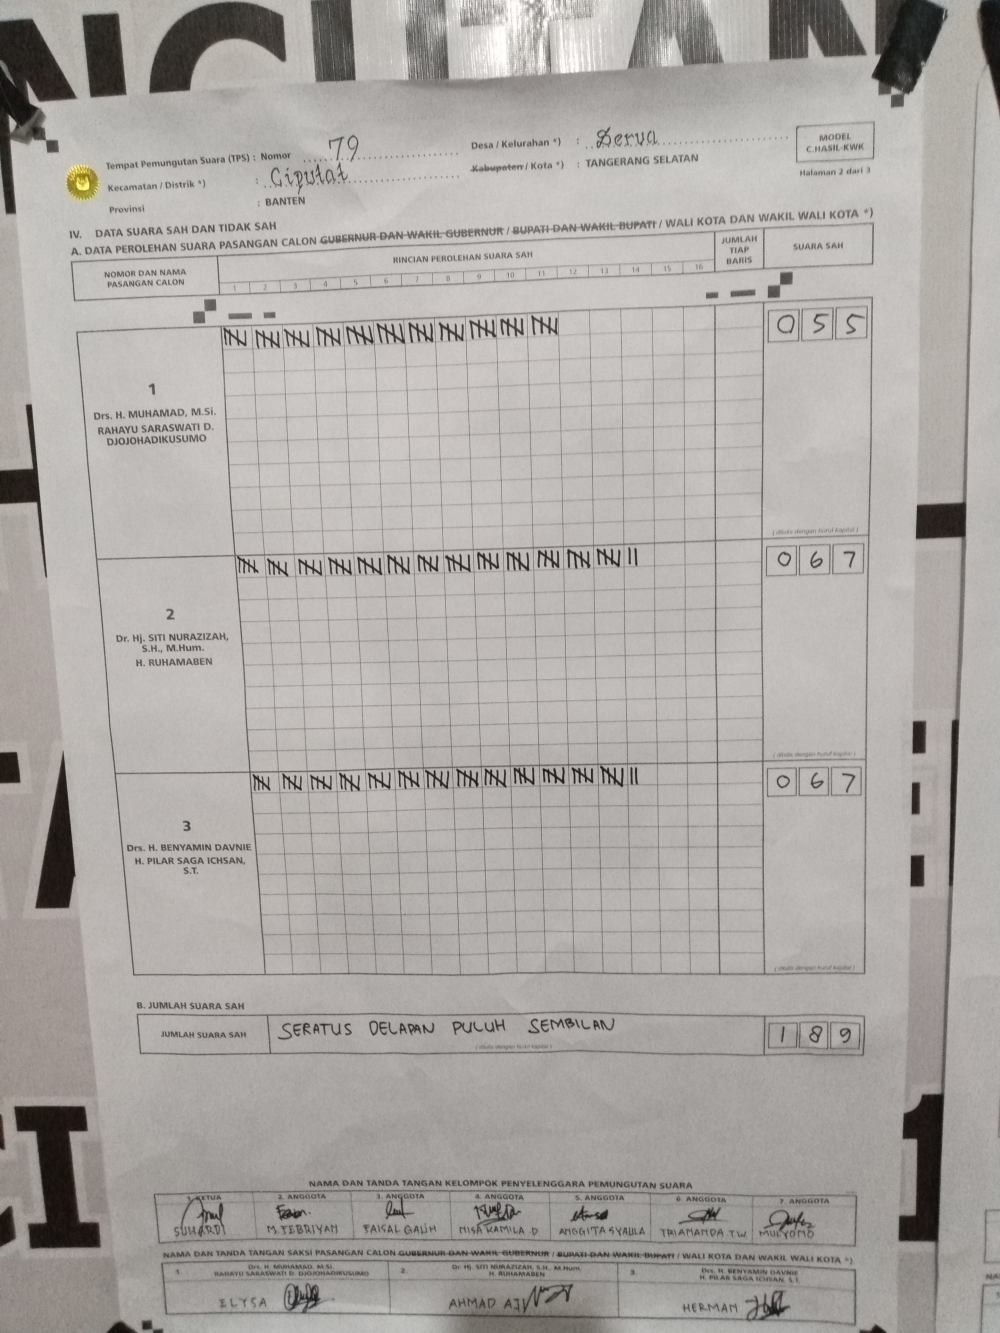 Tempat Pemungutan Suara (TPS) : Nomor 79
Kecamatan / Distrik *) : Ciputat
Provinsi : BANTEN
Desa / Kelurahan *) : Serua
Kabupaten / Kota *) : TANGERANG SELATAN
MODEL
C.HASIL-KWK
Halaman 2 dari 3
IV. DATA SUARA SAH DAN TIDAK SAH
A. DATA PEROLEHAN SUARA PASANGAN CALON GUBERNUR DAN WAKIL GUBERNUR / BUPATI DAN WAKIL BUPATI / WALI KOTA DAN WAKIL WALI KOTA *)
NOMOR DAN NAMA
PASANGAN CALON
RINCIAN PEROLEHAN SUARA SAH
1 2 3 4 5 6 7 8 9 10 11 12 13 14 15 16
JUMLAH
TIAP
BARIS
SUARA SAH
1
Drs. H. MUHAMAD, M.Si.
RAHAYU SARASWATI D.
DJOJOHADIKUSUMO
055
(ditulis dengan huruf kapital)
2
Dr. Hj. SITI NURAZIZAH,
S.H., M.Hum.
H. RUHAMABEN
067
(ditulis dengan huruf kapital)
3
Drs. H. BENYAMIN DAVNIE
H. PILAR SAGA ICHSAN,
S.T.
067
(ditulis dengan huruf kapital)
B. JUMLAH SUARA SAH
JUMLAH SUARA SAH
SERATUS DELAPAN PULUH SEMBILAN
(ditulis dengan huruf kapital)
189
NAMA DAN TANDA TANGAN KELOMPOK PENYELENGGARA PEMUNGUTAN SUARA
1. KETUA 2. ANGGOTA 3. ANGGOTA 4. ANGGOTA 5. ANGGOTA 6. ANGGOTA 7. ANGGOTA
SUHARDI M.TEBRIYAN FAISAL GALIH NISA KAMILA.D ANGGITA SYAULA TRIAMANDA.T.W MULYONO
NAMA DAN TANDA TANGAN SAKSI PASANGAN CALON GUBERNUR DAN WAKIL GUBERNUR / BUPATI DAN WAKIL BUPATI / WALI KOTA DAN WAKIL WALI KOTA *)
1. Drs. H. MUHAMAD, M.Si.
RAHAYU SARASWATI D. DJOJOHADIKUSUMO
2. Dr. Hj. SITI NURAZIZAH, S.H., M.Hum.
H. RUHAMABEN
3. Drs. H. BENYAMIN DAVNIE
H. PILAR SAGA ICHSAN, S.T.
ELYSA
AHMAD
HERMAN